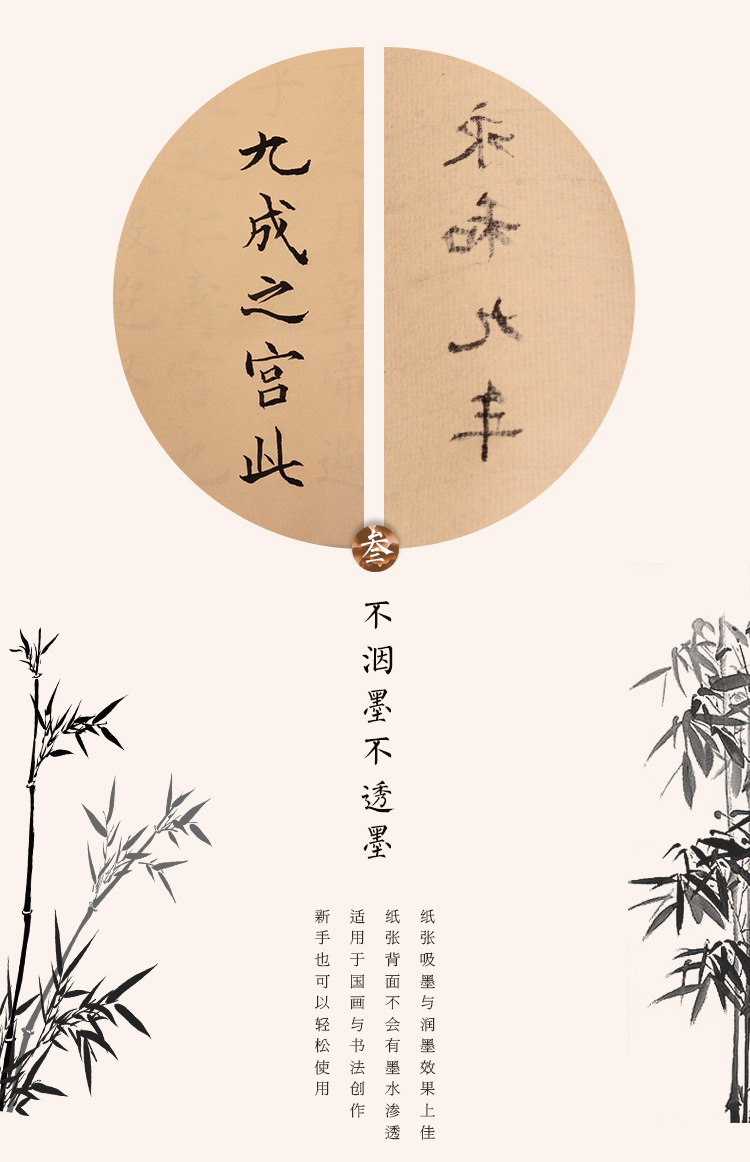 九成之宫此
永和九年
叁
不洇墨不透墨
纸张吸墨与润墨效果上佳
纸张背面不会有墨水渗透
适用于国画与书法创作
新手也可以轻松使用